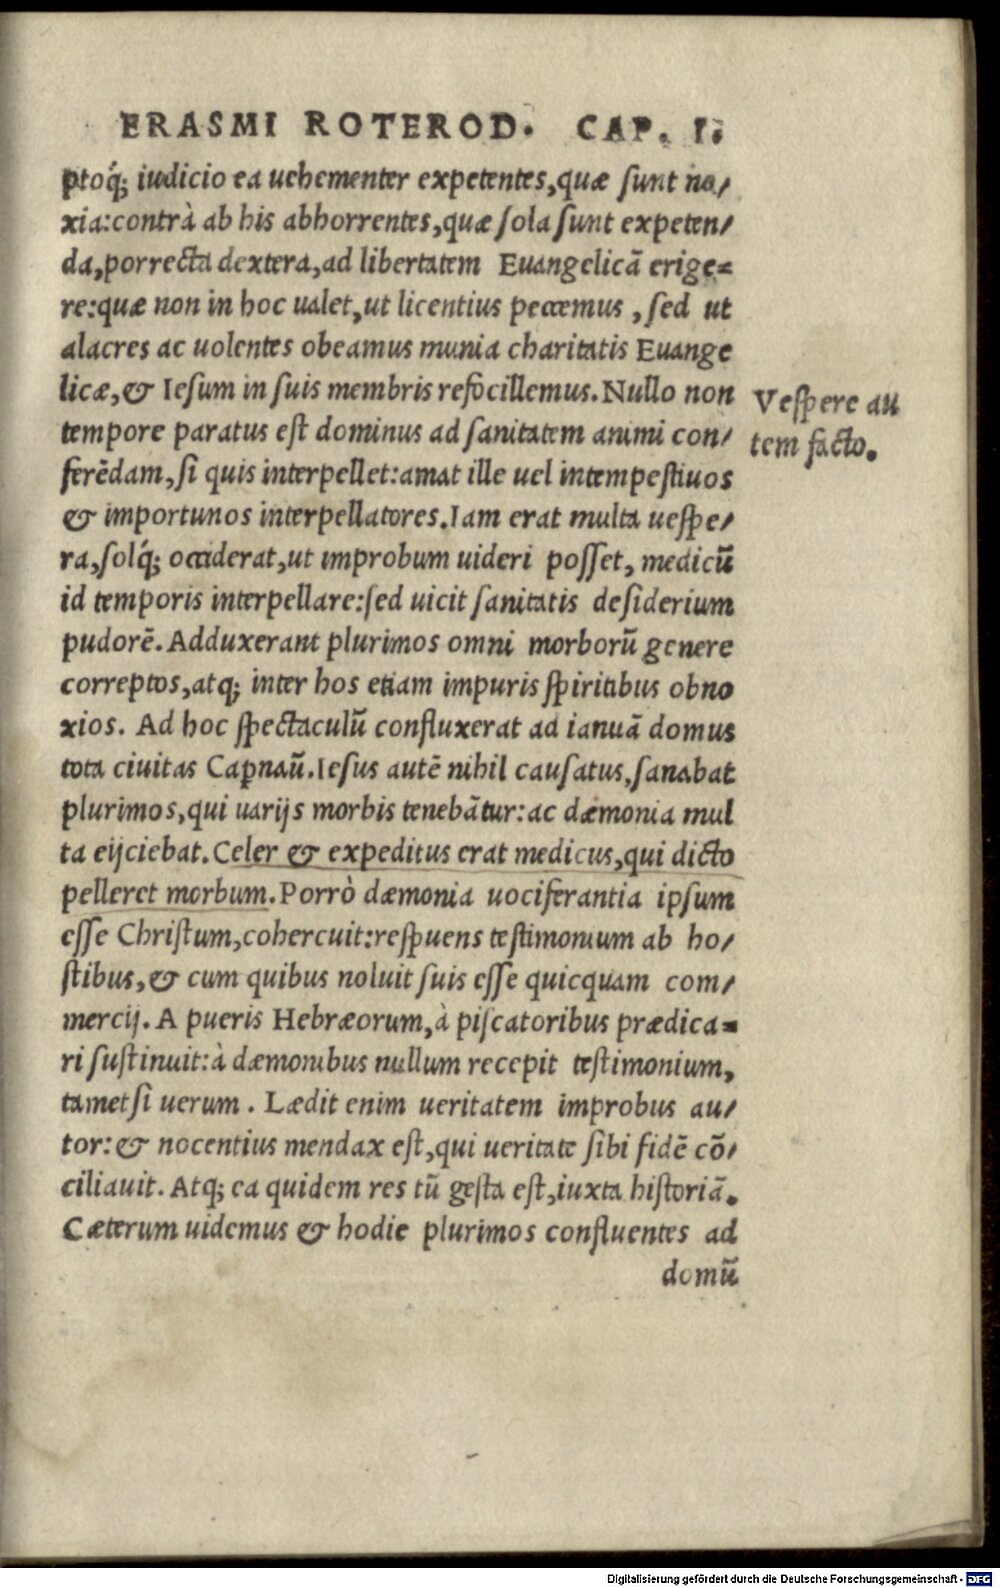 ERASMI ROTEROD. CAP. I.
ptoq́; iudicio ea uehementer expetentes,quæ ſunt no/
xia:contrà ab his abhorrentes,quæ ſola ſunt expeten/
da,porrecta dextera,ad libertatem Euangelicã erige=
re:quæ non in hoc ualet,ut licentius peccemus ,ſed ut
alacres ac uolentes obeamus munia charitatis Euange
licæ,& Ieſum in ſuis membris refocillemus.Nullo non
Veſpere au
tem facto.
tempore paratus eſt dominus ad ſanitatem animi con/
ferẽdam,ſi quis interpellet:amat ille uel intempeſtiuos
& importunos interpellatores.Iam erat multa ueſpe/
ra,ſolq́; occiderat,ut improbum uideri poſſet, medicũ
id temporis interpellare:ſed uicit ſanitatis deſiderium
pudorẽ.Adduxerant plurimos omni morborũ genere
correptos,atq; inter hos etiam impuris ſpiritibus obno
xios. Ad hoc ſpectaculũ confluxerat ad ianuã domus
tota ciuitas Capnaũ.Ieſus autẽ nihil cauſatus,ſanabat
plurimos,qui uarijs morbis tenebãtur:ac dæmonia mul
ta eijciebat.Celer & expeditus erat medicus,qui dicto
pelleret morbum.Porrò dæmonia uociferantia ipſum
eſſe Chriſtum,cohercuit:reſpuens teſtimonium ab ho/
ſtibus,& cum quibus noluit ſuis eſſe quicquam com/
mercij.A pueris Hebræorum,à piſcatoribus prædica=
ri ſuſtinuit:à dæmonibus nullum recepit teſtimonium,
tametſi uerum. Lædit enim ueritatem improbus au/
tor:& nocentius mendax eſt,qui ueritate ſibi fidẽ cõ/
ciliauit.Atq; ea quidem res tũ geſta eſt,iuxta hiſtoriã.
Cæterum uidemus & hodie plurimos confluentes ad
domũ
Digitalisierung gefördert durch die Deutsche Forschungsgemeinschaft - DFG